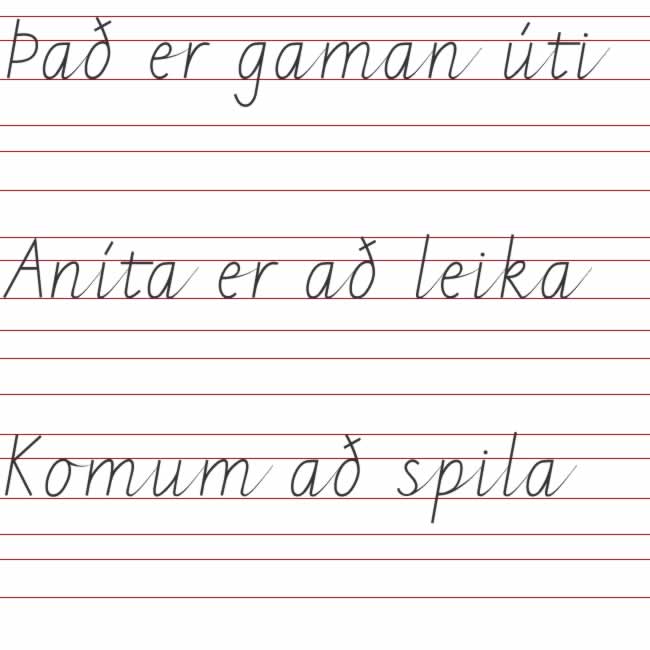 Það er gaman úti
Aníta er að leika
Komum að spila